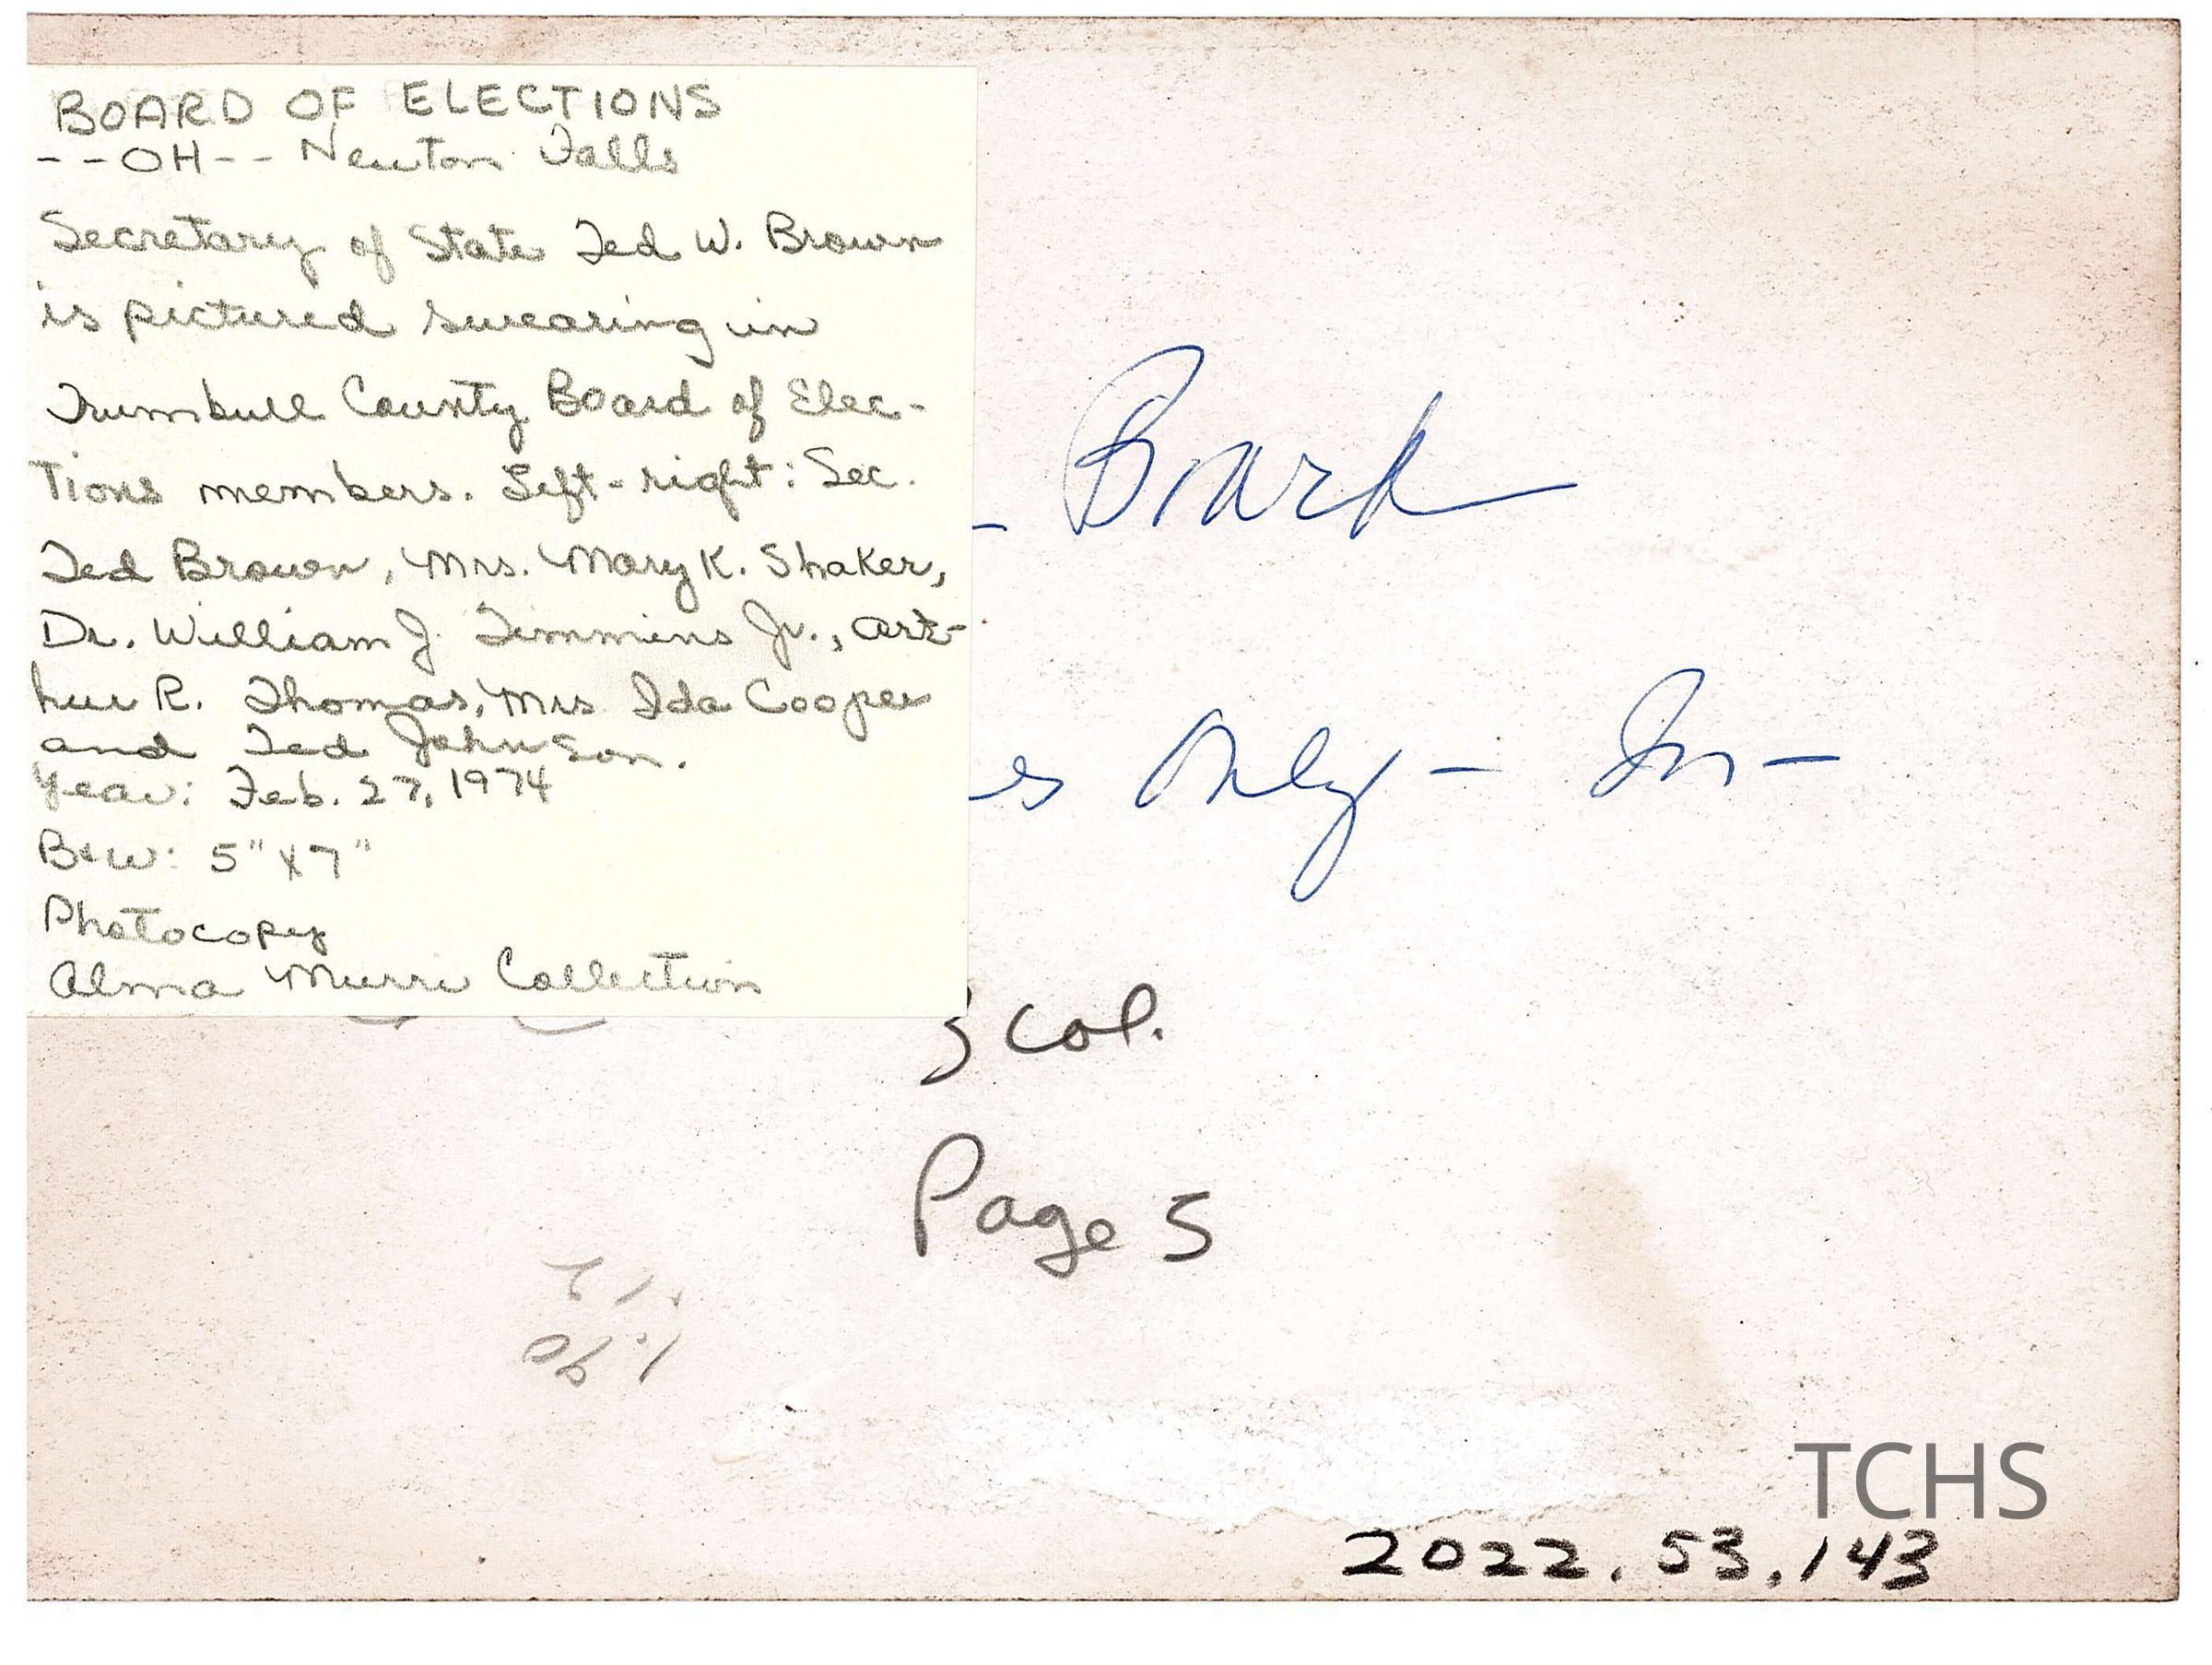 BOARD OF ELECTIONS
--OH-- Newton Falls
Secretary of State Ted W. Brown
is pictured swearing in
Trumbull County Board of Elec-
tions members. Left-right: Sec.
Ted Brown, Mrs. Mary K. Shaker,
Dr. William J. Timmins Jr., Art-
hur R. Thomas, Mrs Ida Cooper
and Ted Johnson.
Year: Feb. 27, 1974
B&W: 5" x 7"
Photocopy
Alma Murri Collection
- Board
es Only - In -
3 col.
Page 5
TCHS
2022.53.143